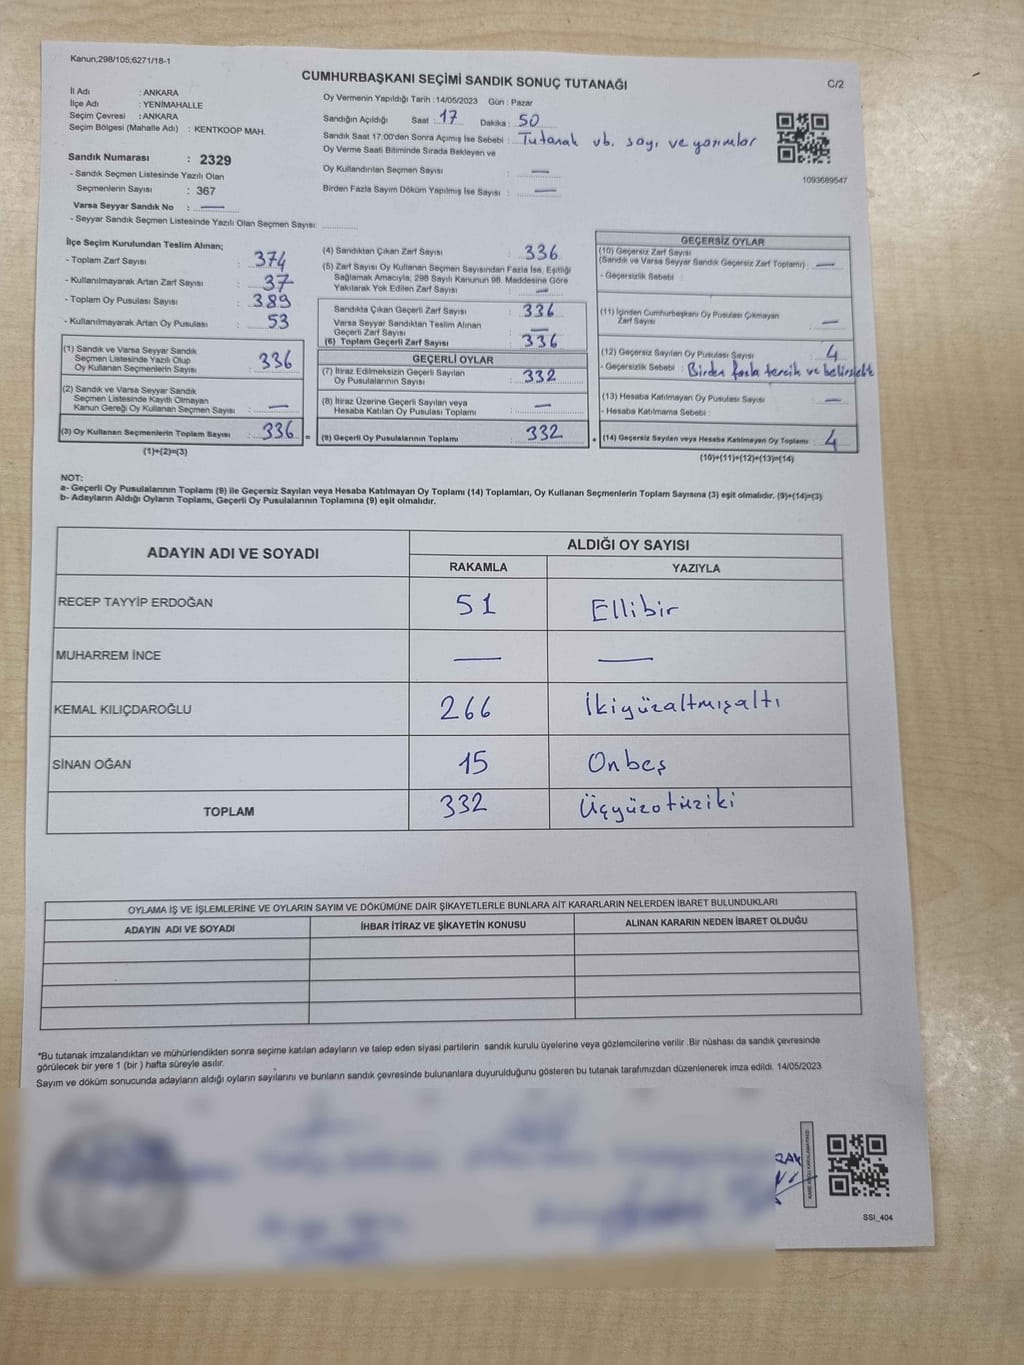 Kanun;298/105;6271/18-1
CUMHURBAŞKANI SEÇİMİ SANDIK SONUÇ TUTANAĞI
C/2
İl Adı : ANKARA
İlçe Adı : YENİMAHALLE
Seçim Çevresi : ANKARA
Seçim Bölgesi (Mahalle Adı) : KENTKOOP MAH.
Sandık Numarası : 2329
- Sandık Seçmen Listesinde Yazılı Olan
Seçmenlerin Sayısı : 367
Varsa Seyyar Sandık No : —
- Seyyar Sandık Seçmen Listesinde Yazılı Olan Seçmen Sayısı:
Oy Vermenin Yapıldığı Tarih : 14/05/2023 Gün : Pazar
Sandığın Açıldığı Saat : 17 Dakika : 50
Sandık Saat 17:00'den Sonra Açımış İse Sebebi : Tutanak vb. sayı ve yazımlar
Oy Verme Saati Bitiminde Sırada Bekleyen ve
Oy Kullandırılan Seçmen Sayısı : —
Birden Fazla Sayım Döküm Yapılmış İse Sayısı : —
1093689547
İlçe Seçim Kurulundan Teslim Alınan;
- Toplam Zarf Sayısı : 374
- Kullanılmayarak Artan Zarf Sayısı : 37
- Toplam Oy Pusulası Sayısı : 389
- Kullanılmayarak Artan Oy Pusulası : 53
(1) Sandık ve Varsa Seyyar Sandık
Seçmen Listesinde Yazılı Olup
Oy Kullanan Seçmenlerin Sayısı : 336
(2) Sandık ve Varsa Seyyar Sandık
Seçmen Listesinde Kayıtlı Olmayan
Kanun Gereği Oy Kullanan Seçmen Sayısı : —
(3) Oy Kullanan Seçmenlerin Toplam Sayısı : 336 =
(1)+(2)=(3)
(4) Sandıktan Çıkan Zarf Sayısı : 336
(5) Zarf Sayısı Oy Kullanan Seçmen Sayısından Fazla İse, Eşitliği
Sağlamak Amacıyla, 298 Sayılı Kanunun 98. Maddesine Göre
Yakılarak Yok Edilen Zarf Sayısı : —
Sandıkta Çıkan Geçerli Zarf Sayısı : 336
Varsa Seyyar Sandıktan Teslim Alınan
Geçerli Zarf Sayısı : —
(6) Toplam Geçerli Zarf Sayısı : 336
GEÇERLİ OYLAR
(7) İtiraz Edilmeksizin Geçerli Sayılan
Oy Pusulalarının Sayısı : 332
(8) İtiraz Üzerine Geçerli Sayılan veya
Hesaba Katılan Oy Pusulası Toplamı : —
(9) Geçerli Oy Pusulalarının Toplamı : 332 +
GEÇERSİZ OYLAR
(10) Geçersiz Zarf Sayısı
(Sandık ve Varsa Seyyar Sandık Geçersiz Zarf Toplamı) : —
- Geçersizlik Sebebi :
(11) İçinden Cumhurbaşkanı Oy Pusulası Çıkmayan
Zarf Sayısı : —
(12) Geçersiz Sayılan Oy Pusulası Sayısı : 4
- Geçersizlik Sebebi : Birden fazla tercih ve
(13) Hesaba Katılmayan Oy Pusulası Sayısı : —
- Hesaba Katılmama Sebebi :
(14) Geçersiz Sayılan veya Hesaba Katılmayan Oy Toplamı : 4
(10)+(11)+(12)+(13)=(14)
NOT:
a- Geçerli Oy Pusulalarının Toplamı (9) ile Geçersiz Sayılan veya Hesaba Katılmayan Oy Toplamı (14) Toplamları, Oy Kullanan Seçmenlerin Toplam Sayısına (3) eşit olmalıdır. (9)+(14)=(3)
b- Adayların Aldığı Oyların Toplamı, Geçerli Oy Pusulalarının Toplamına (9) eşit olmalıdır.
ADAYIN ADI VE SOYADI
ALDIĞI OY SAYISI
RAKAMLA YAZIYLA
RECEP TAYYİP ERDOĞAN 51 Ellibir
MUHARREM İNCE — —
KEMAL KILIÇDAROĞLU 266 İkiyüzaltmışaltı
SİNAN OĞAN 15 Onbeş
TOPLAM 332 Üçyüzotuziki
OYLAMA İŞ VE İŞLEMLERİNE VE OYLARIN SAYIM VE DÖKÜMÜNE DAİR ŞİKAYETLERLE BUNLARA AİT KARARLARIN NELERDEN İBARET BULUNDUKLARI
ADAYIN ADI VE SOYADI İHBAR İTİRAZ VE ŞİKAYETİN KONUSU ALINAN KARARIN NEDEN İBARET OLDUĞU
*Bu tutanak imzalandıktan ve mühürlendikten sonra seçime katılan adayların ve talep eden siyasi partilerin sandık kurulu üyelerine veya gözlemcilerine verilir .Bir nüshası da sandık çevresinde
görülecek bir yere 1 (bir ) hafta süreyle asılır.
Sayım ve döküm sonucunda adayların aldığı oyların sayılarını ve bunların sandık çevresinde bulunanlara duyurulduğunu gösteren bu tutanak tarafımızdan düzenlenerek imza edildi. 14/05/2023
SSI_404